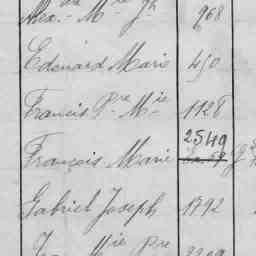 Alex.dre Mie Jh 968
Edouard Marie 450
Francis Pre Mie 1128
2549
François Marie
Gabriel Joseph 1792
Mie Pre